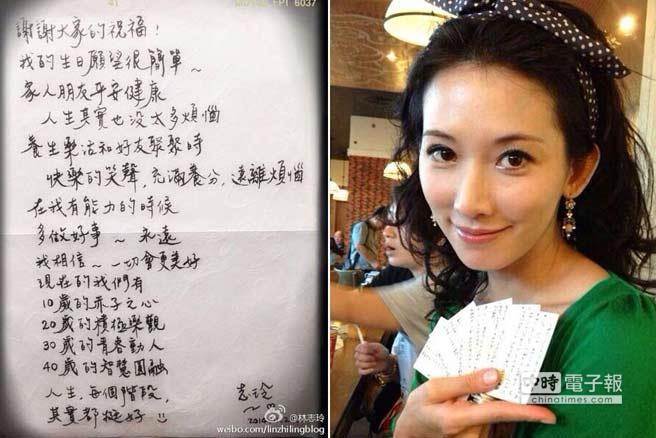 謝謝大家的祝福!
我的生日願望很簡單~
家人朋友平安健康
人生其實也沒太多煩惱
養生樂活和好友聚聚時
快樂的笑聲,充滿養分,遠離煩惱
在我有能力的時候
多做好事~永遠
我相信~一切會更美好
現在的我們有
10歲的赤子之心
20歲的積極樂觀
30歲的青春動人
40歲的智慧圓融
人生,每個階段,
其實都挺好!!
志玲
@林志玲
weibo.com/linzhilingblog
中時電子報
chinatimes.com